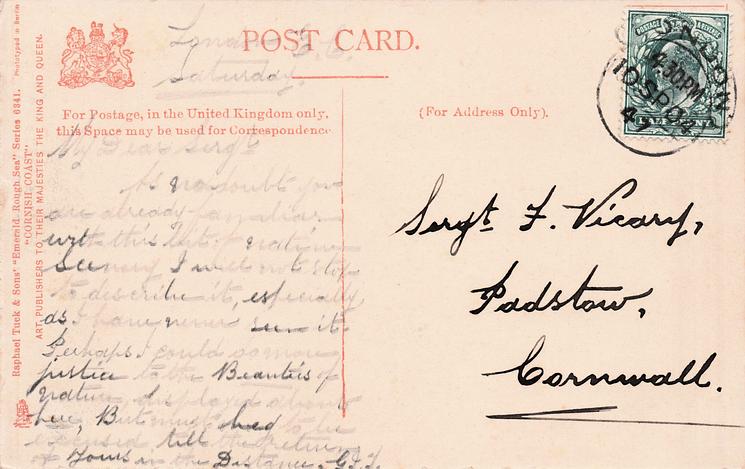 London E.C.
Saturday.
POST CARD.
For Postage, in the United Kingdom only,
this Space may be used for Correspondence
(For Address Only).
POSTAGE & REVENUE
HALFPENNY
LONDON
4.30PM
10 SP 04
47
My Dear Sergt
As no doubt you
are already familiar
with this bit of native
Scenery I will not stop
to describe it, especially
as I have never seen it.
Perhaps I could do more
justice to the Beauties of
Nature displayed about
here, But must beg to be
excused till the return
Yours in the Distance,
Sergt F. Vicary,
Padstow,
Cornwall.
Raphael Tuck & Sons' "Emerald Rough Sea" Series 6341.
"CORNISH COAST"
ART PUBLISHERS TO THEIR MAJESTIES THE KING AND QUEEN.
Phototyped in Berlin